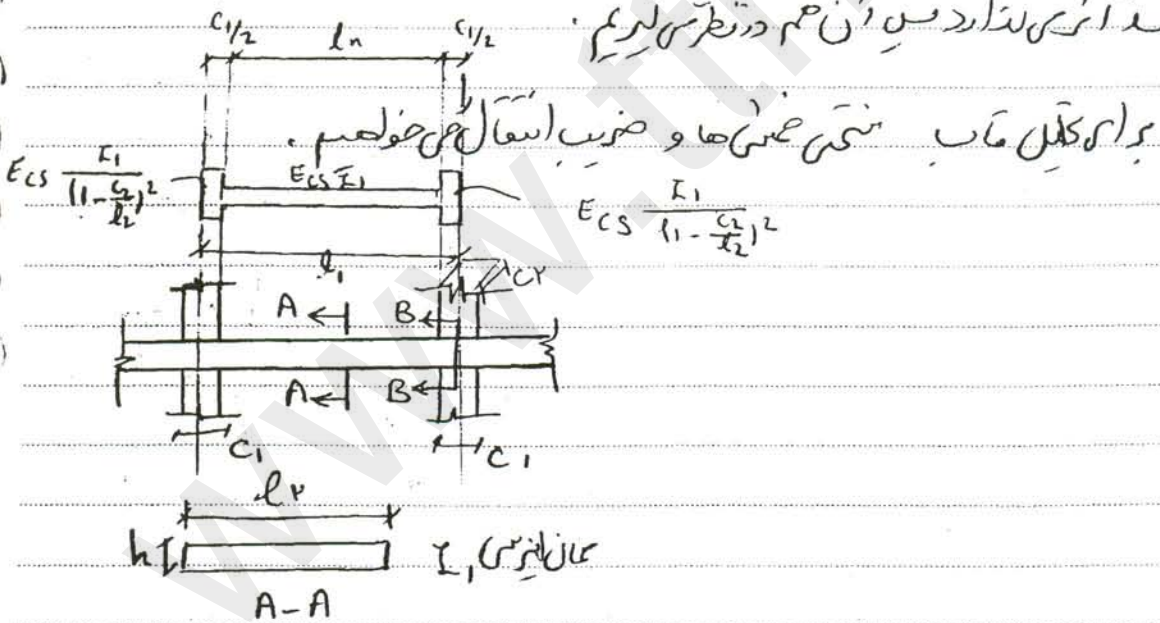 اثری ندارد پس آن هم در نظر می گیریم .
برای تحلیل قاب سختی خمشی ها و ضریب انتقال می خواهیم .
C1/2 ln C1/2
E_cs I1/(1-c2/l2)^2
E_cs I1
E_cs I1/(1-c2/l2)^2
l1
C۲
A B
A B
C1 C1
l۲
h I1 ممان اینرسی
A-A
www.